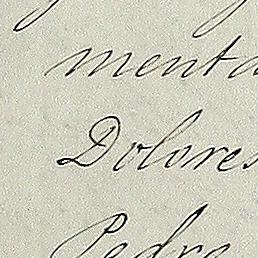 menta
Dolores
Pedro